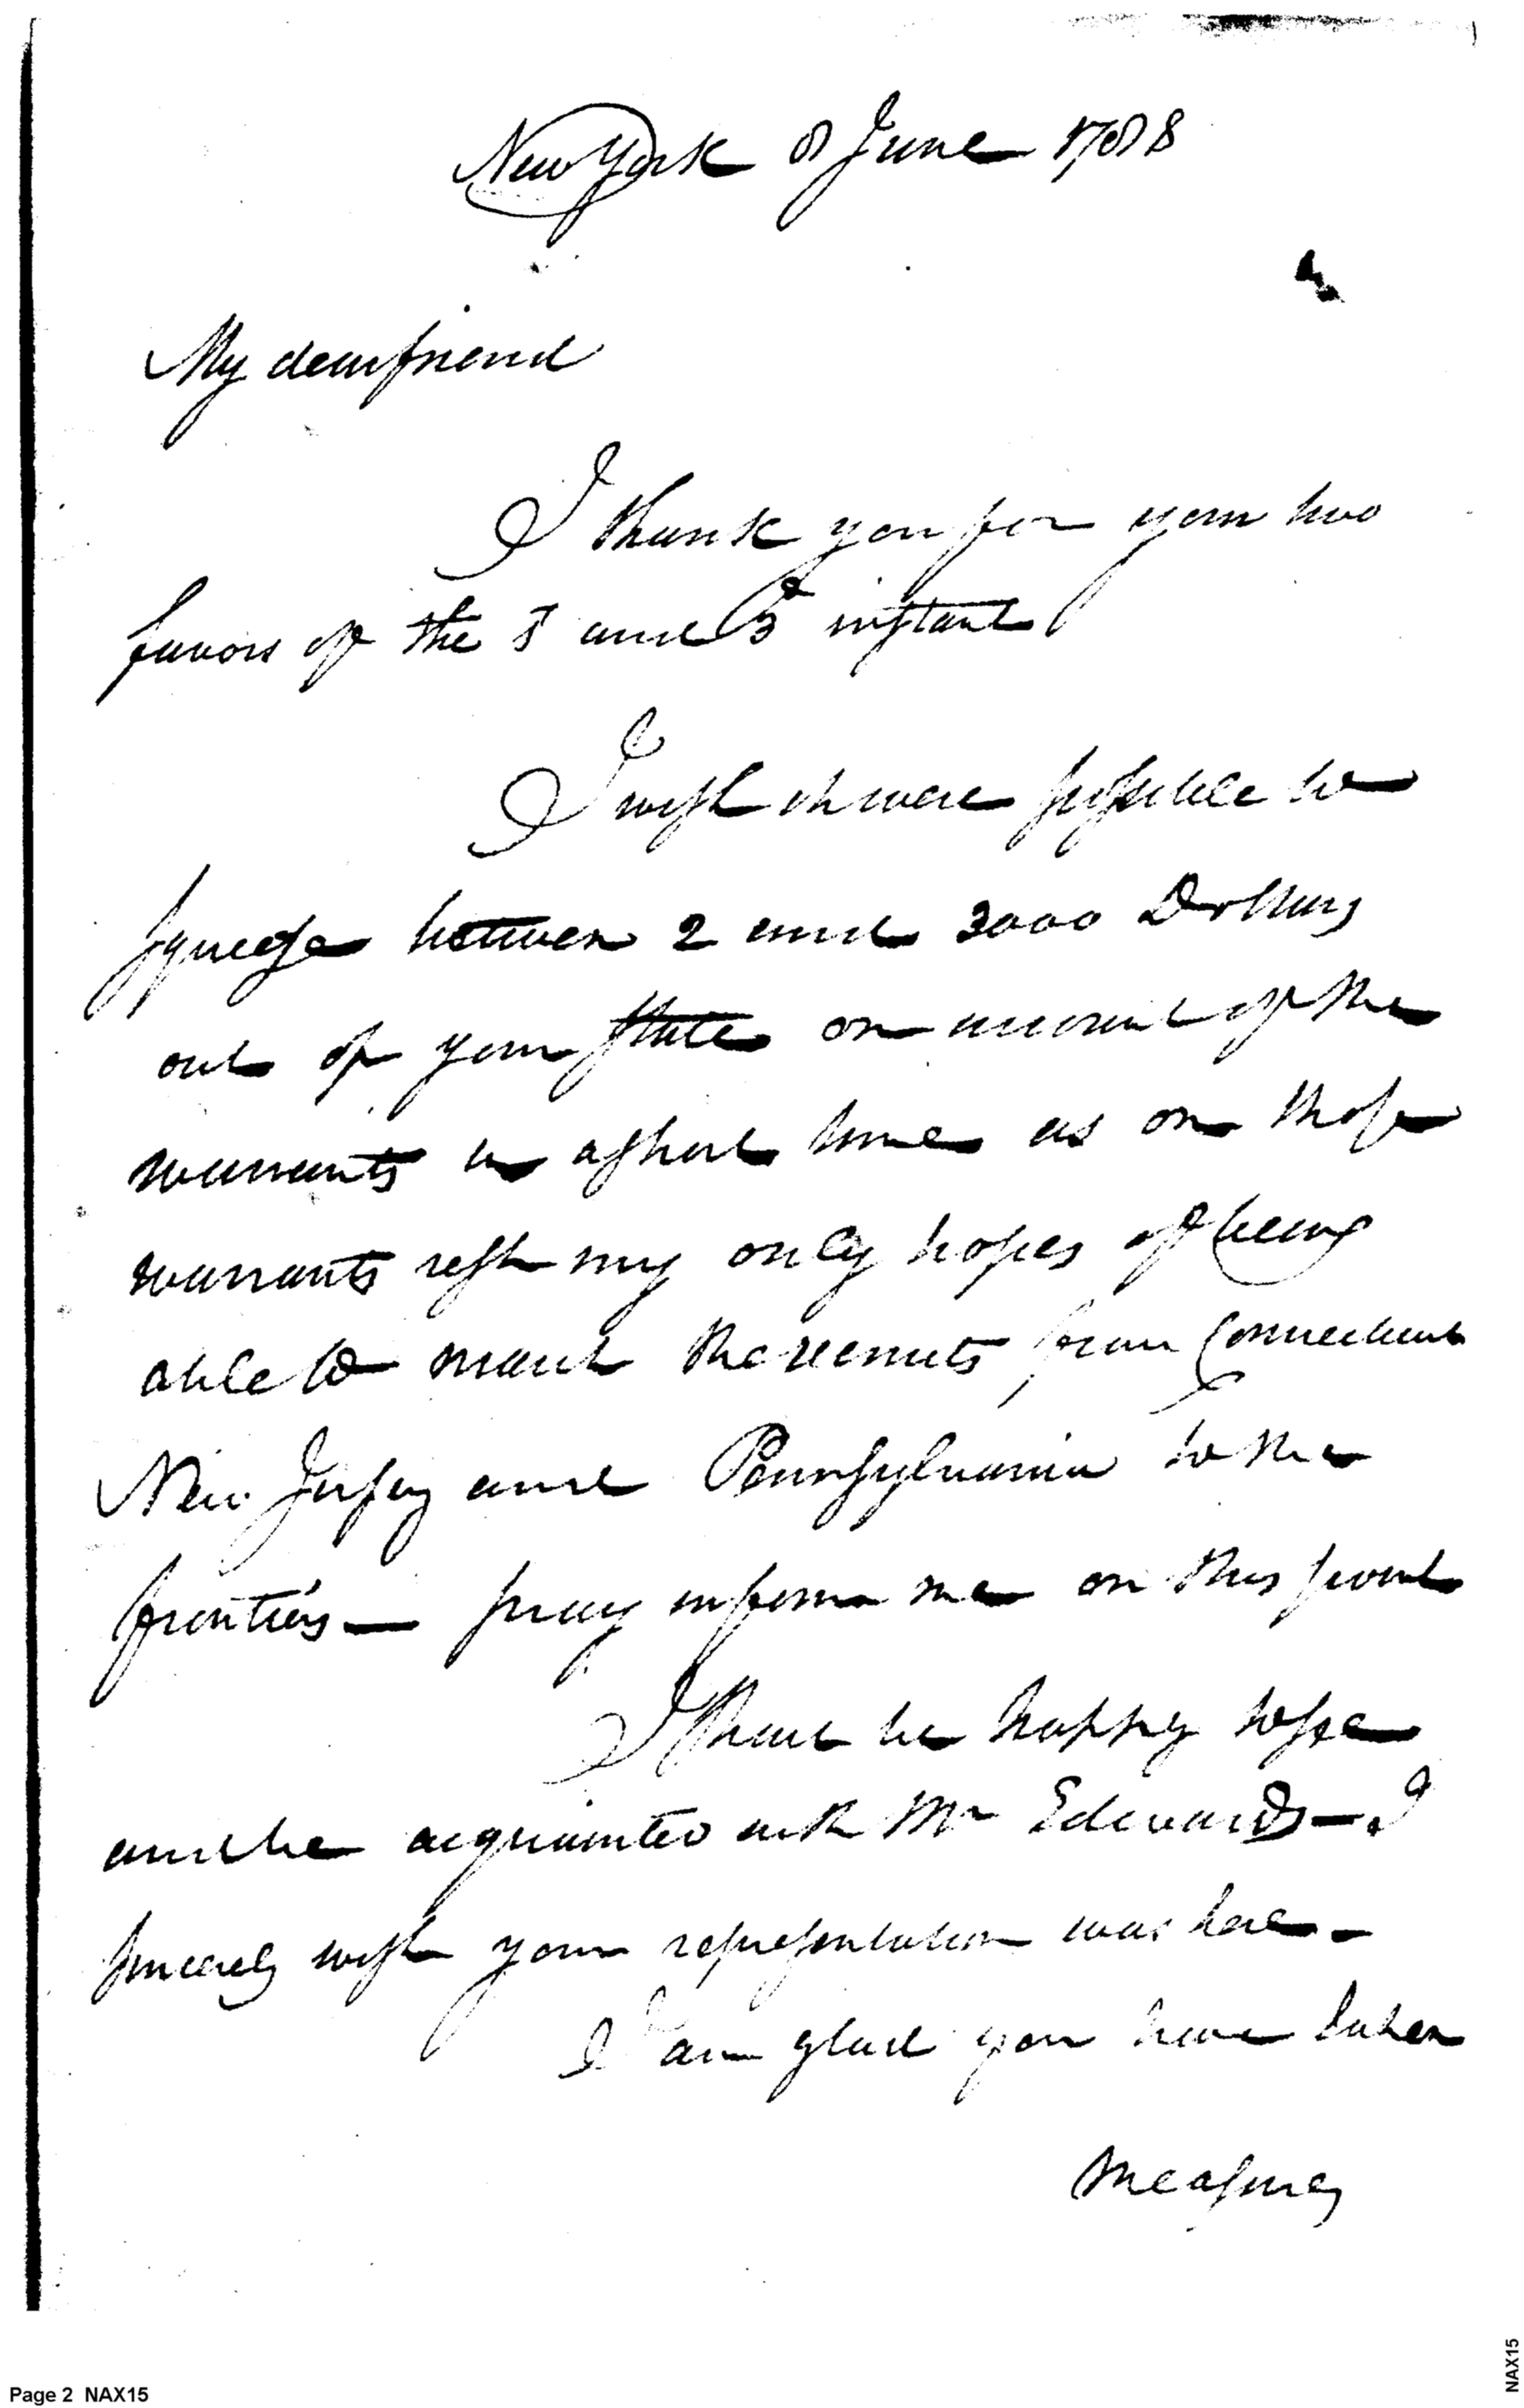 New York 8 June 1788
My dear friend
I thank you for your two
favors of the 1 and 3d instant
I wish it were possible to
squeeze between 2 and 3000 Dollars
out of your State on account of the
warrants in a short time as on those
warrants rest my only hopes of being
able to march the recruits from Connecticut
New Jersey and Pennsylvania to the
frontiers — pray inform me on this point
I shall be happy to see
and be acquainted with Mr Edwards — I
sincerely wish your representation was here —
I am glad you have taken
measures
Page 2 NAX15
NAX15